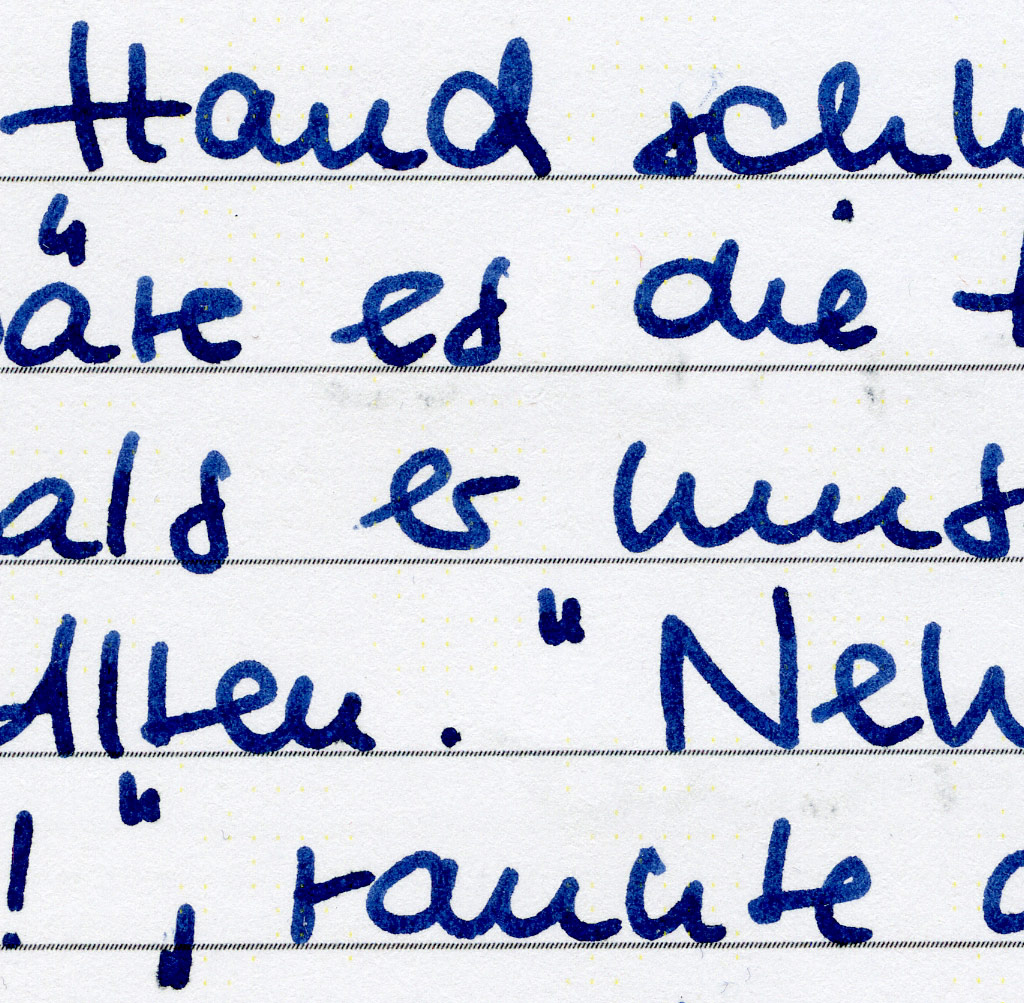 Hand sch
äre es die
als er uns
llten. "Neh
!", raunte